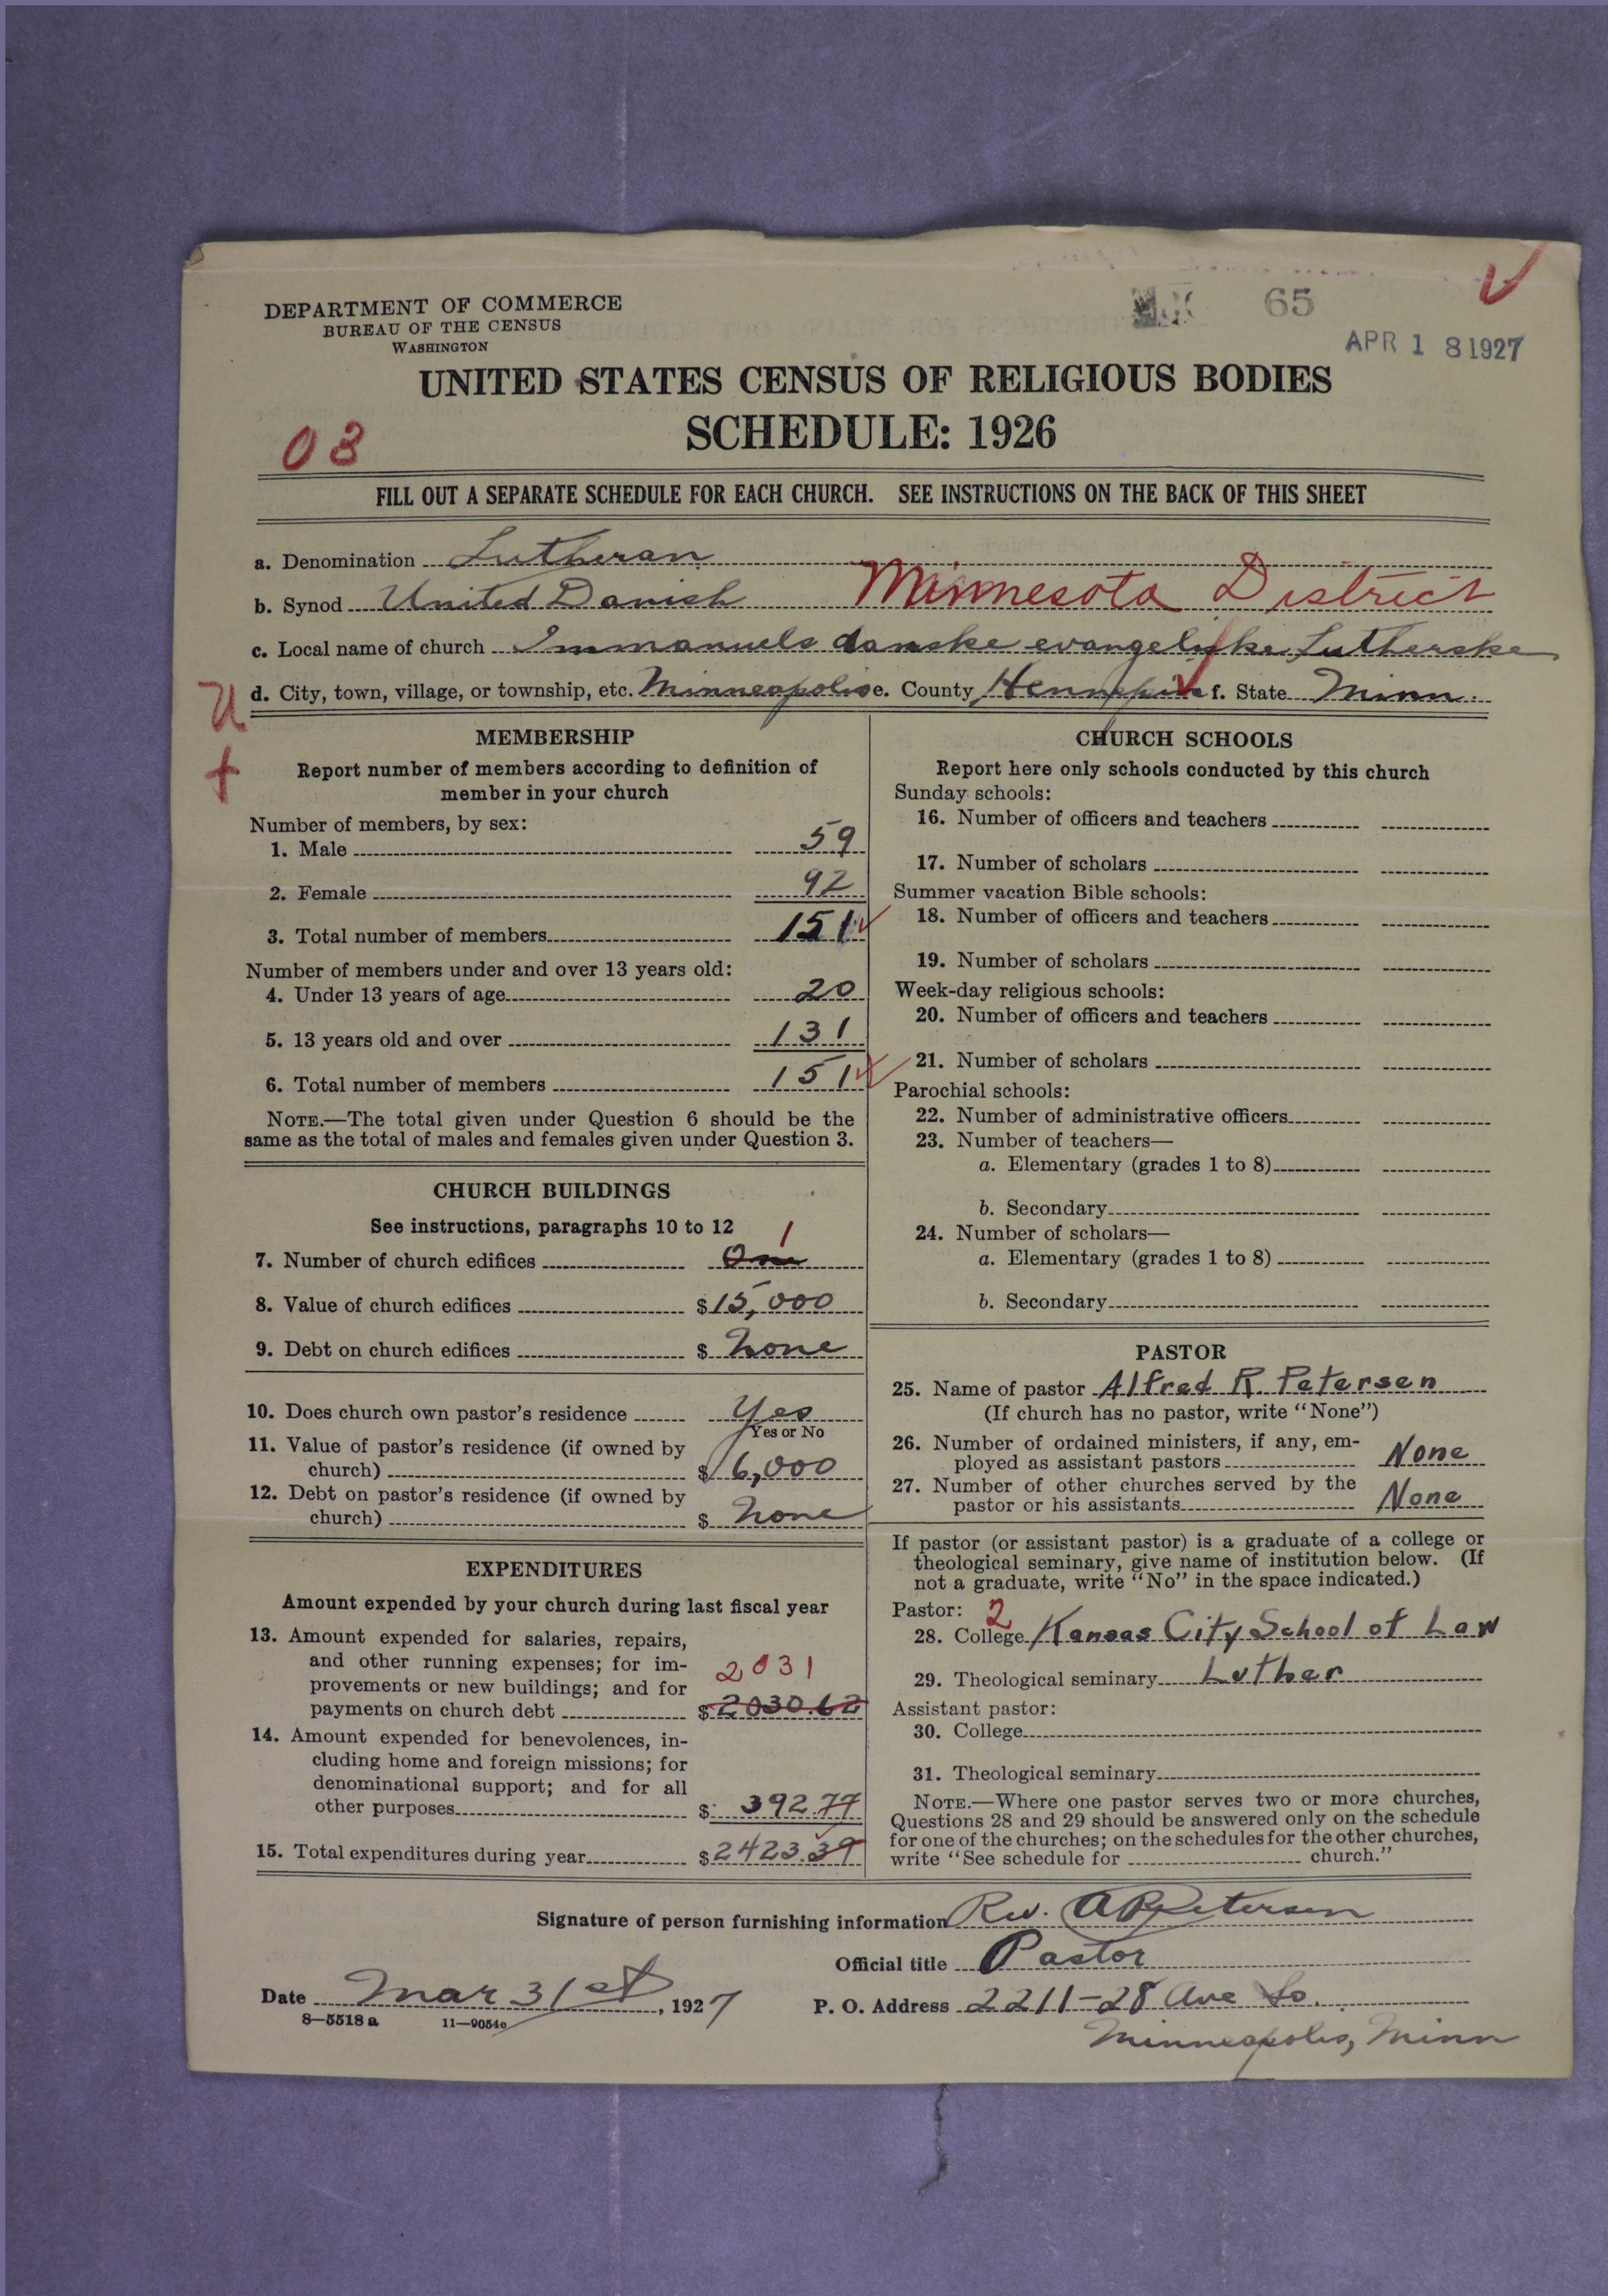 DEPARTMENT OF COMMERCE
BUREAU OF THE CENSUS
WASHINGTON
65
APR 18 1927
UNITED STATES CENSUS OF RELIGIOUS BODIES
SCHEDULE: 1926
03
FILL OUT A SEPARATE SCHEDULE FOR EACH CHURCH. SEE INSTRUCTIONS ON THE BACK OF THIS SHEET
a. Denomination Lutheran
b. Synod United Danish Minnesota District
c. Local name of church Immanuels danske evangeliske Lutherske
d. City, town, village, or township, etc. Minneapolis e. County Hennepin f. State Minn.
U
MEMBERSHIP
Report number of members according to definition of
member in your church
Number of members, by sex:
1. Male 59
2. Female 92
3. Total number of members 151
Number of members under and over 13 years old:
4. Under 13 years of age 20
5. 13 years old and over 131
6. Total number of members 151
NOTE.—The total given under Question 6 should be the
same as the total of males and females given under Question 3.
CHURCH BUILDINGS
See instructions, paragraphs 10 to 12
1
7. Number of church edifices One
8. Value of church edifices $15,000
9. Debt on church edifices $ None
10. Does church own pastor's residence Yes
Yes or No
11. Value of pastor's residence (if owned by
church) $6,000
12. Debt on pastor's residence (if owned by
church) $ None
EXPENDITURES
Amount expended by your church during last fiscal year
13. Amount expended for salaries, repairs,
and other running expenses; for im-
provements or new buildings; and for 2031
payments on church debt $2030.62
14. Amount expended for benevolences, in-
cluding home and foreign missions; for
denominational support; and for all
other purposes $ 392.77
15. Total expenditures during year $2423.39
CHURCH SCHOOLS
Report here only schools conducted by this church
Sunday schools:
16. Number of officers and teachers
17. Number of scholars
Summer vacation Bible schools:
18. Number of officers and teachers
19. Number of scholars
Week-day religious schools:
20. Number of officers and teachers
21. Number of scholars
Parochial schools:
22. Number of administrative officers
23. Number of teachers—
a. Elementary (grades 1 to 8)
b. Secondary
24. Number of scholars—
a. Elementary (grades 1 to 8)
b. Secondary
PASTOR
25. Name of pastor Alfred R. Petersen
(If church has no pastor, write "None")
26. Number of ordained ministers, if any, em-
ployed as assistant pastors None
27. Number of other churches served by the
pastor or his assistants None
If pastor (or assistant pastor) is a graduate of a college or
theological seminary, give name of institution below. (If
not a graduate, write "No" in the space indicated.)
Pastor: 2
28. College Kansas City School of Law
29. Theological seminary Luther
Assistant pastor:
30. College
31. Theological seminary
NOTE.—Where one pastor serves two or more churches,
Questions 28 and 29 should be answered only on the schedule
for one of the churches; on the schedules for the other churches,
write "See schedule for church."
Signature of person furnishing information Rev. A R Petersen
Official title Pastor
Date Mar 31st, 1927 P. O. Address 2211-28 Ave So.
8—5518a 11—9054c
Minneapolis, Minn